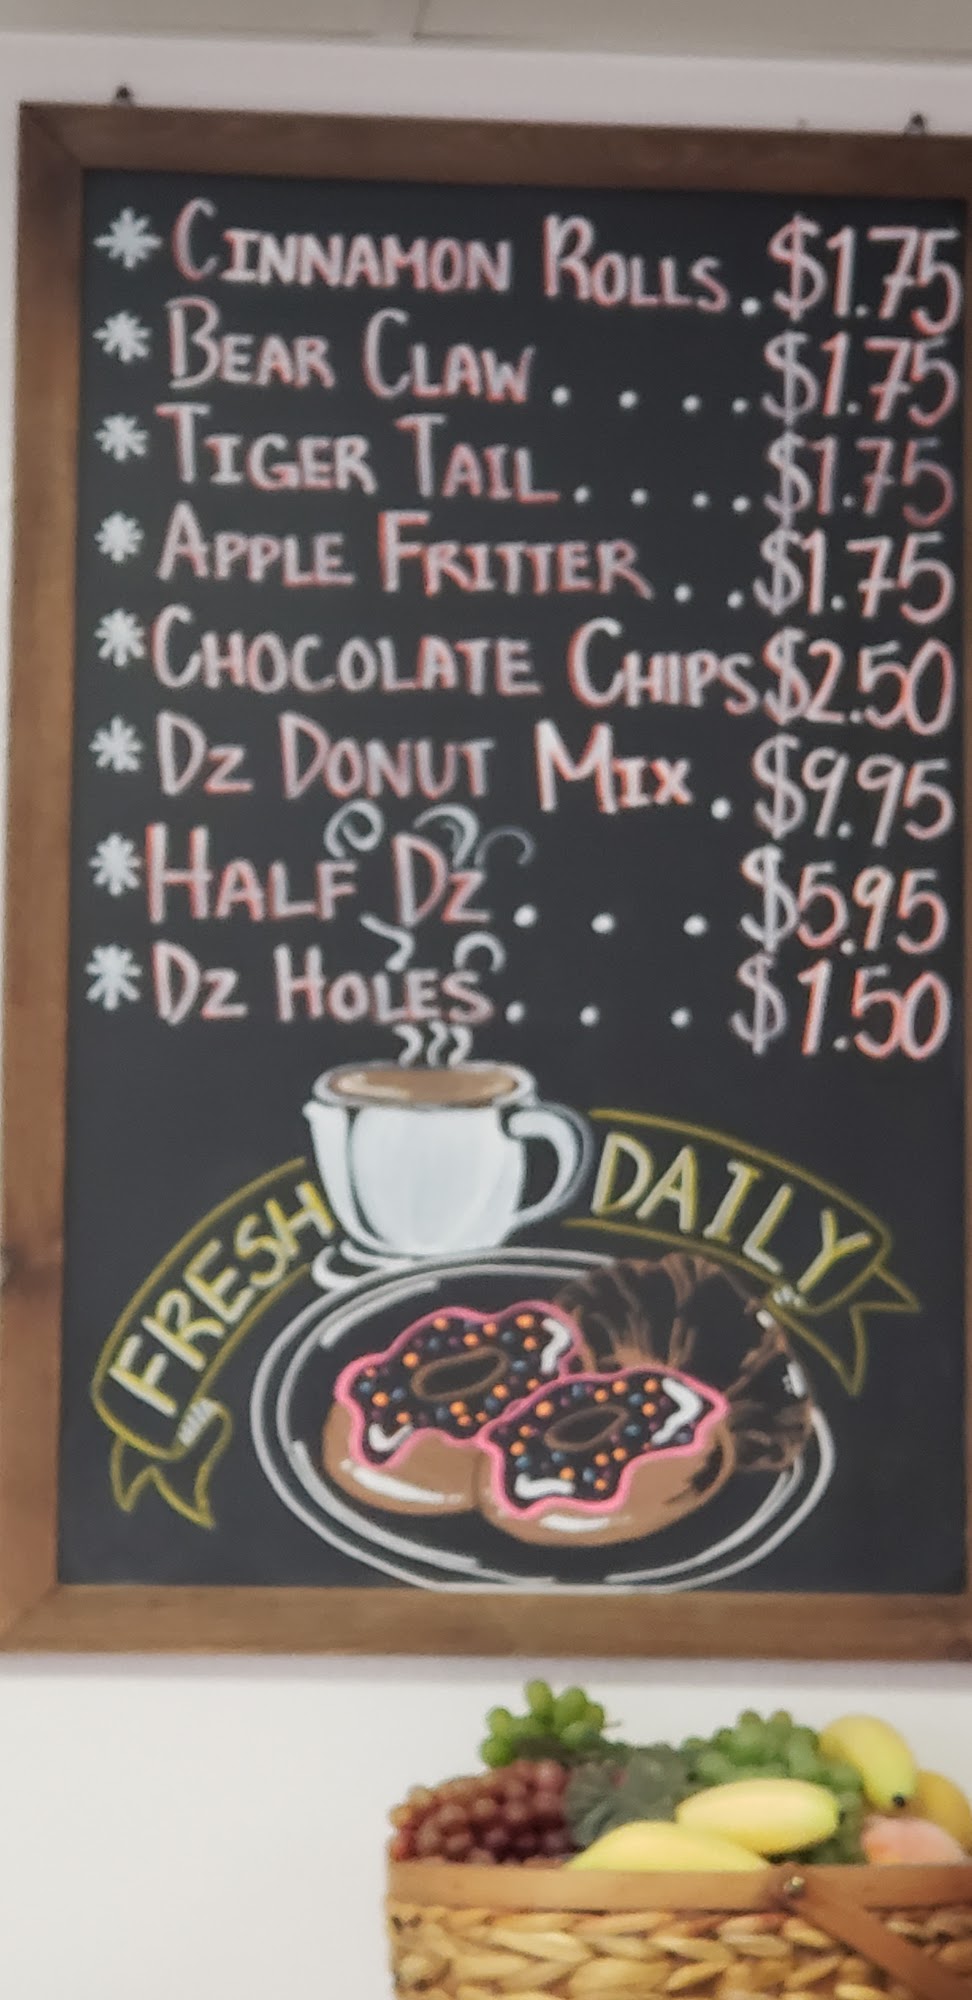 * CINNAMON ROLLS . $1.75
* BEAR CLAW . . . . $1.75
* TIGER TAIL . . . . $1.75
* APPLE FRITTER . . $1.75
* CHOCOLATE CHIPS $2.50
* DZ DONUT MIX . $9.95
* HALF DZ . . . $5.95
* DZ HOLES . . . $1.50
FRESH DAILY